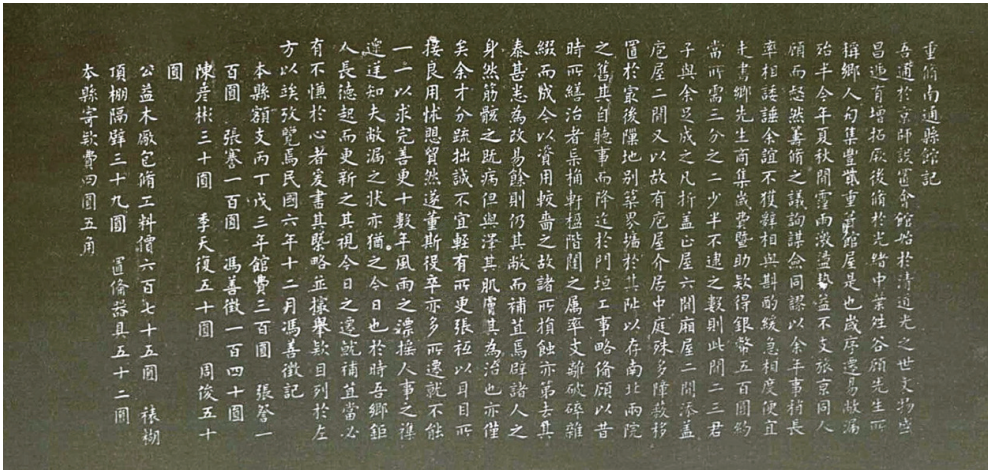 重脩南通縣館記
吾通於京師設置會館始於清道光之世文物盛
昌遞有增拓厥後脩於光緒中葉姓谷顧先生所
稱鄉人勾集豐貲重葺館屋是也歲序遷易敝漏
殆半今年夏秋間霪雨激盪益不支旅京同人
顧而怒然善脩之議詢謀僉同謬以余年事稍長
率相諉諈余誼不獲辭相與斟酌緩急相度便宜
走書鄉先生商集歲費暨助款得銀幣五百圓約
當所需三分之二少半不逮之數則此間二三君
子與余足成之凡折蓋正屋六間廂屋二間添蓋
庖屋二間又以故有庖屋介居中庭殊多障穢移
置於最後隙地別築界墻於其阯以存南北兩院
之舊其自聽事而降迄於門垣工事略脩顧以昔
時所繕治者杗桷軒楹階闥之屬率支離破碎雜
綴而成今以資用較嗇之故諸所損蝕亦第去其
泰甚悉為改易餘則仍其敝而補苴焉辟諸人之
身然筋骸之既病但與澤其肌膚其為治也亦僅
矣余才分疏拙誠不宜輕有所更張衹以耳目所
接良用怵惕貿然遂董斯役卒亦多所遷就不能
一一以求完善更十數年風雨之漂搖人事之
遑遑知夫敝漏之狀亦猶之今日也於時吾鄉鉅
人長德起而更新之其視今日之遷就補苴當必
有不慊於心者爰書其槩略並攘舉款目列於左
方以諉攷覽焉民國六年十二月馮善徵記
本縣額支丙丁戊三年館費三百圓　張詧一
百圓　張謇一百圓　馮善徵一百四十圓
陳彥彬三十圓　季天復五十圓　周俊五十
圓
公益木廠包脩工料價六百七十五圓　裱糊
頂棚隔壁三十九圓　置脩器具五十二圓
本縣寄款費四圓五角